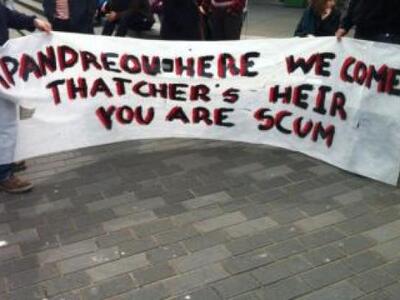 PANDREOU HERE WE COME
THATCHER'S HEIR
YOU ARE SCUM